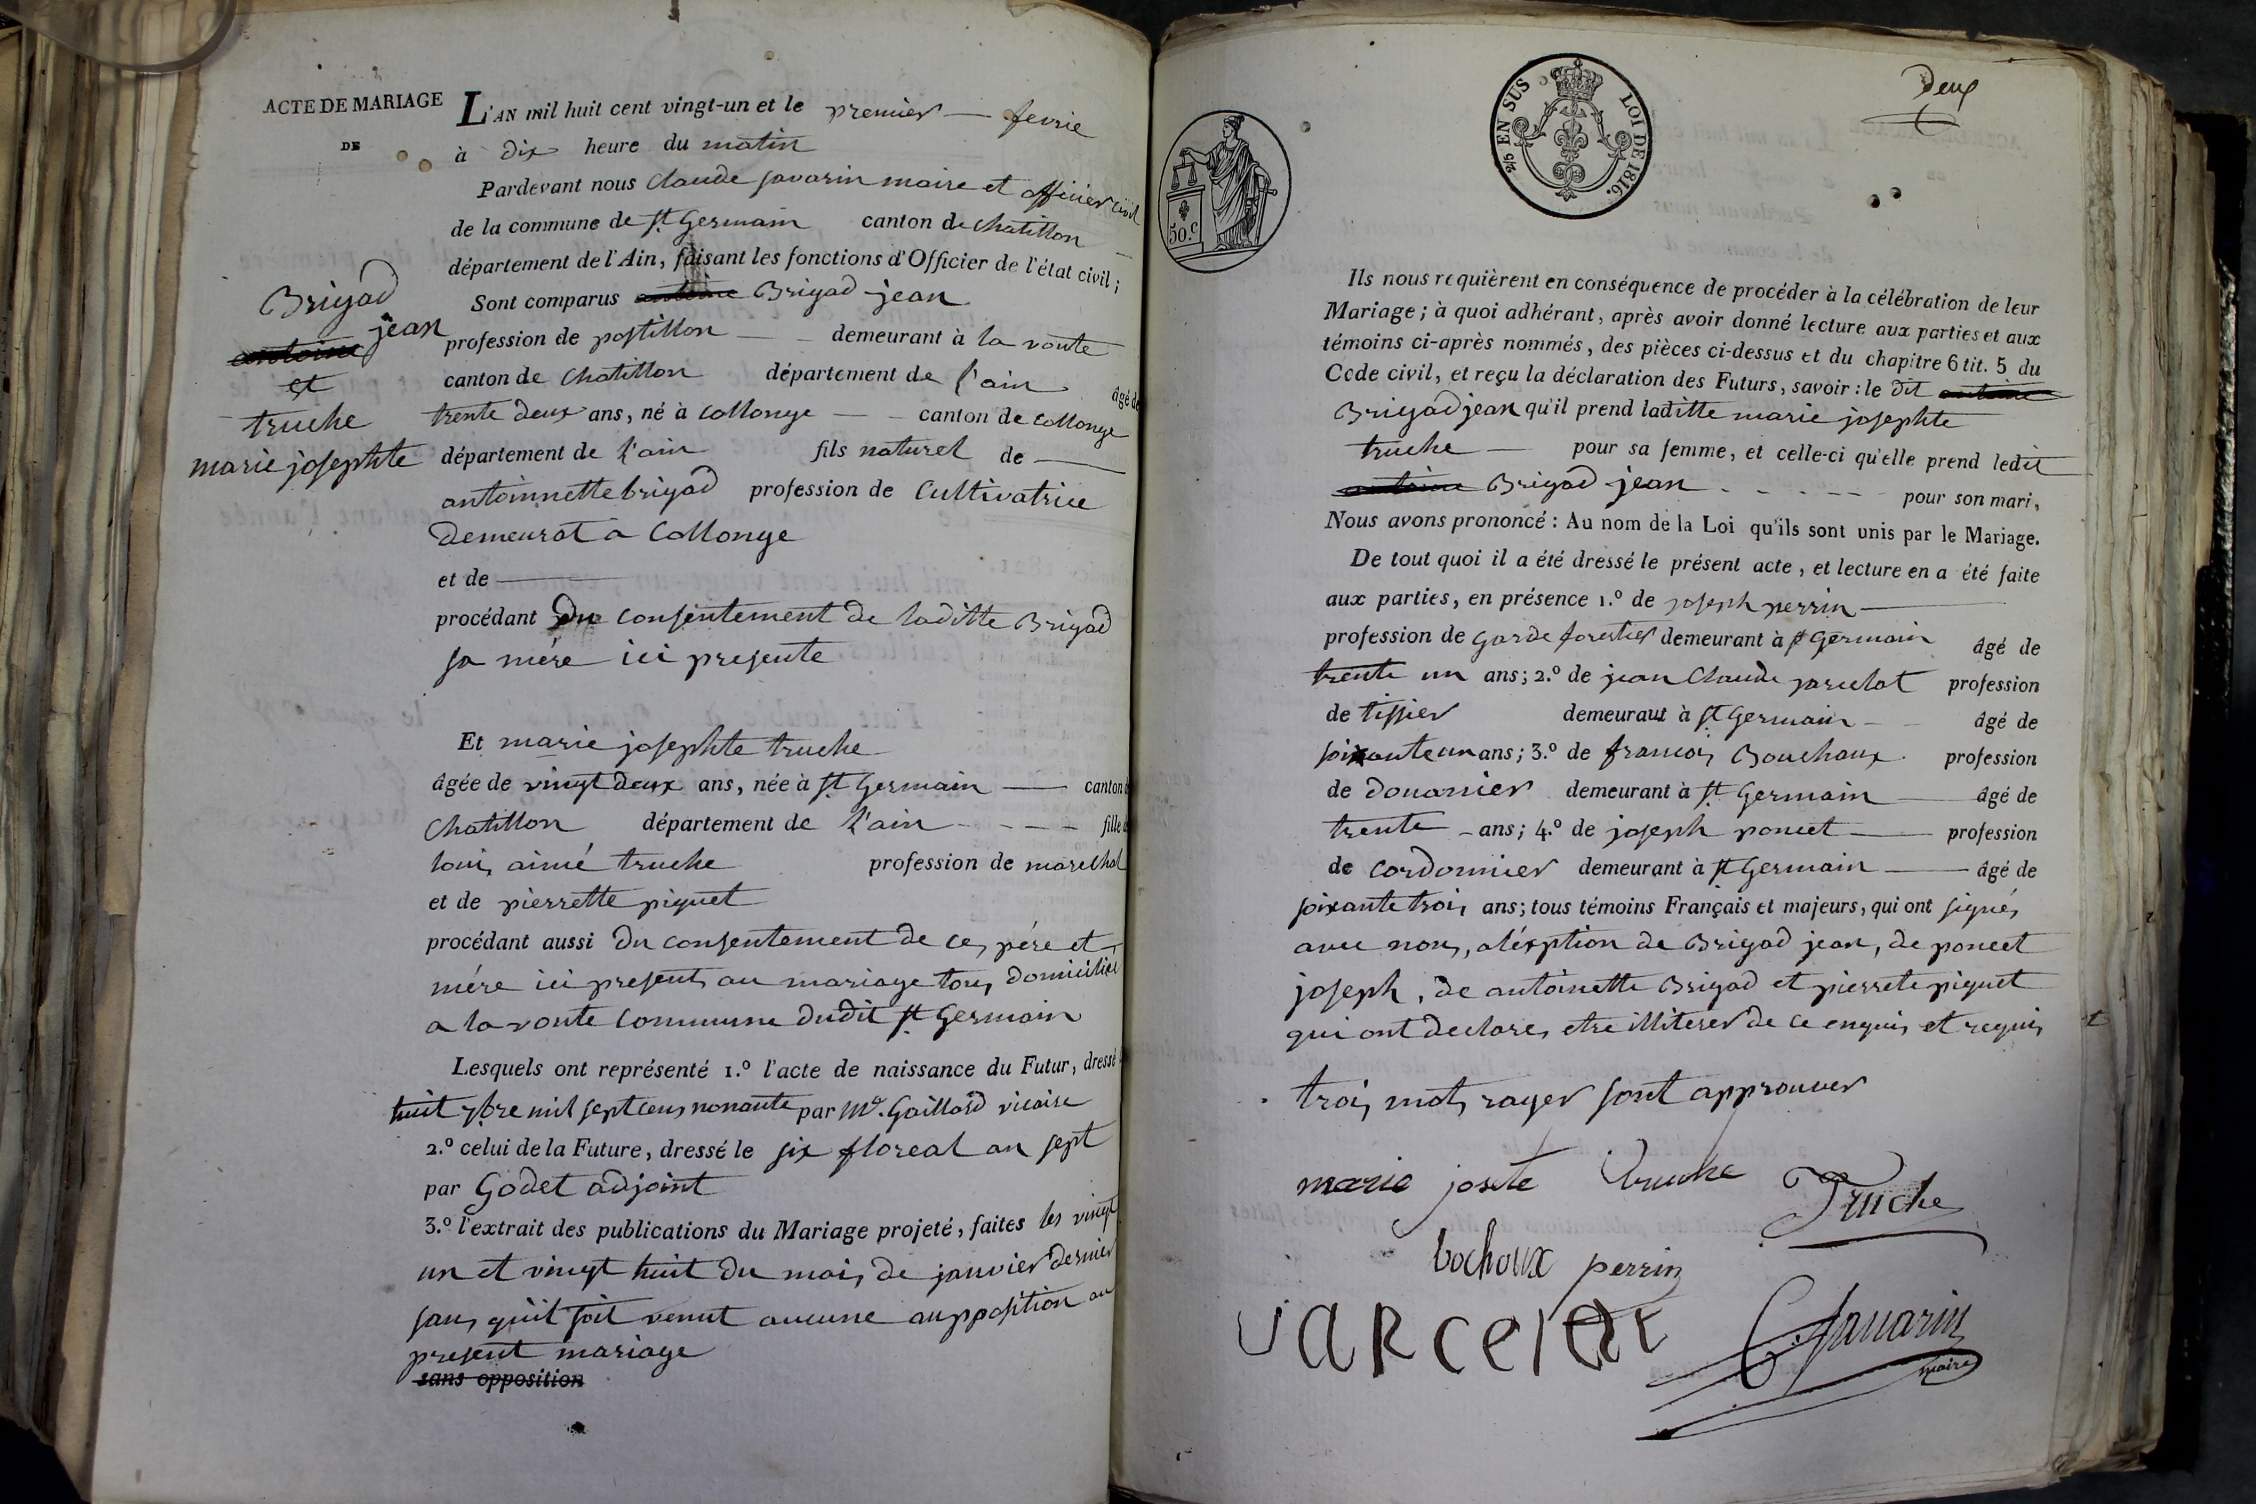 ACTE DE MARIAGE
DE
Brigad
jean
antoine
et
truche
marie josephte
L'AN mil huit cent vingt-un et le premier — fevrie
à dix heure du matin
Pardevant nous Claude savarin maire et officier civil
de la commune de St Germain canton de chatillon
département de l'Ain, faisant les fonctions d'Officier de l'état civil;
Sont comparus antoine Brigad jean
profession de postillon — demeurant à la voute
canton de chatillon département de l'ain âgé de
trente deux ans, né à collonge — canton de collonge
département de l'ain fils naturel de —
antoinnette brigad profession de cultivatrice
demeurat a Collonge
et de —
procédant du consentement de laditte Brigad
sa mére ici presente
Et marie josephte truche
âgée de vingt deux ans, née à St Germain — canton
chatillon département de l'ain - - - - fille
loui, aimé truche profession de marechal
et de pierrette piquet
procédant aussi du consentement de ces pére et
mére ici present au mariage tous domicilié
a la voute commune dudit St Germain
Lesquels ont représenté 1.º l'acte de naissance du Futur, dressé
huit 7bre mil sept cens nonante par Md. Gaillard vicaire
2.º celui de la Future, dressé le six floreal an sept
par Godet adjoint
3.º l'extrait des publications du Mariage projeté, faites les vingt
un et vingt huit du mois de janvier dernier
sans qu'il soit venut aucune aupposition au
present mariage
sans opposition
Deux
2/5 EN SUS LOI DE 1816.
50.c
Ils nous requièrent en conséquence de procéder à la célébration de leur
Mariage; à quoi adhérant, après avoir donné lecture aux parties et aux
témoins ci-après nommés, des pièces ci-dessus et du chapitre 6 tit. 5 du
Code civil, et reçu la déclaration des Futurs, savoir: le dit antoine
Brigad jean qu'il prend laditte marie josephte
truche — pour sa femme, et celle-ci qu'elle prend ledit
antoine Brigad jean - - - - - pour son mari,
Nous avons prononcé: Au nom de la Loi qu'ils sont unis par le Mariage.
De tout quoi il a été dressé le présent acte, et lecture en a été faite
aux parties, en présence 1.º de joseph perrin —
profession de garde forestier demeurant à St Germain âgé de
trente un ans; 2.º de jean Claude jarcelot profession
de tissier demeurant à St Germain — âgé de
soixante un ans; 3.º de francois Bouchoux profession
de douanier demeurant à St Germain — âgé de
trente - ans; 4.º de joseph poncet — profession
de cordonnier demeurant à St Germain — âgé de
soixante trois ans; tous témoins Français et majeurs, qui ont signés
avec nous, aléxption de Brigad jean, de poncet
joseph, de antoinette Brigad et pierrete piquet
qui ont declares etre illiterer de ce enquis et requis
trois mots rayer sont approuver
marie joste truche Truche
bochoux perrin
JARCelot C. Savarin
maire